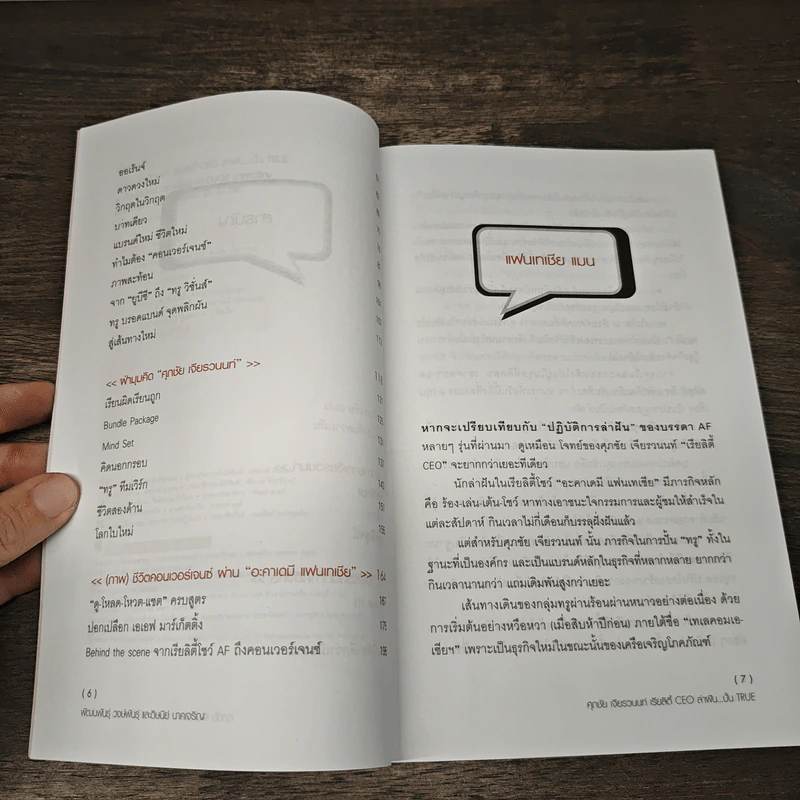 ออเร้นจ์
ดาวดวงใหม่
วิกฤตในวิกฤต
บาทเดียว
แบรนด์ใหม่ ชีวิตใหม่
ทำไมต้อง “คอนเวอร์เจนซ์”
ภาพสะท้อน
จาก “ยูบีซี” ถึง “ทรู วิชั่นส์”
ทรู บรอดแบนด์ จุดพลิกผัน
สู่เส้นทางใหม่
<< ผ่ามุมคิด “ศุภชัย เจียรวนนท์” >>
เรียนผิดเรียนถูก
Bundle Package
Mind Set
คิดนอกกรอบ
“ทรู” ทีมเวิร์ก
ชีวิตสองด้าน
โลกใบใหม่
<< (ภาพ) ชีวิตคอนเวอร์เจนซ์ ผ่าน “อะคาเดมี แฟนเทเชีย” >> 164
“ดู-โหลด-โหวต-แชต” ครบสูตร
ปอกเปลือก เอเอฟ มาร์เก็ตติ้ง
Behind the scene จากเรียลิตี้โชว์ AF ถึงคอนเวอร์เจนซ์
(6)
พัฒนพันธุ์ วงษ์พันธุ์ และดิษนีย์ นาคเจริญ
แฟนเทเชีย แมน
หากจะเปรียบเทียบกับ “ปฏิบัติการล่าฝัน” ของบรรดา AF
หลายๆ รุ่นที่ผ่านมา ดูเหมือน โจทย์ของศุภชัย เจียรวนนท์ “เรียลิตี้
CEO” จะยากกว่าเยอะทีเดียว
นักล่าฝันในเรียลิตี้โชว์ “อะคาเดมี แฟนเทเชีย” มีภารกิจหลัก
คือ ร้อง-เล่น-เต้น-โชว์ หาทางเอาชนะใจกรรมการและผู้ชมให้สำเร็จใน
แต่ละสัปดาห์ กินเวลาไม่กี่เดือนก็บรรลุฝั่งฝันแล้ว
แต่สำหรับศุภชัย เจียรวนนท์ นั้น ภารกิจในการปั้น “ทรู” ทั้งใน
ฐานะที่เป็นองค์กร และเป็นแบรนด์หลักในธุรกิจที่หลากหลาย ยากกว่า
กินเวลานานกว่า แถมเดิมพันสูงกว่าเยอะ
เส้นทางเดินของกลุ่มทรูผ่านร้อนผ่านหนาวอย่างต่อเนื่อง ด้วย
การเริ่มต้นอย่างหวือหวา (เมื่อสิบห้าปีก่อน) ภายใต้ชื่อ “เทเลคอมเอ-
เชียฯ” เพราะเป็นธุรกิจใหม่ในขณะนั้นของเครือเจริญโภคภัณฑ์
(7)
ศุภชัย เจียรวนนท์ เรียลิตี้ CEO ล่าฝัน...ปั้น TRUE